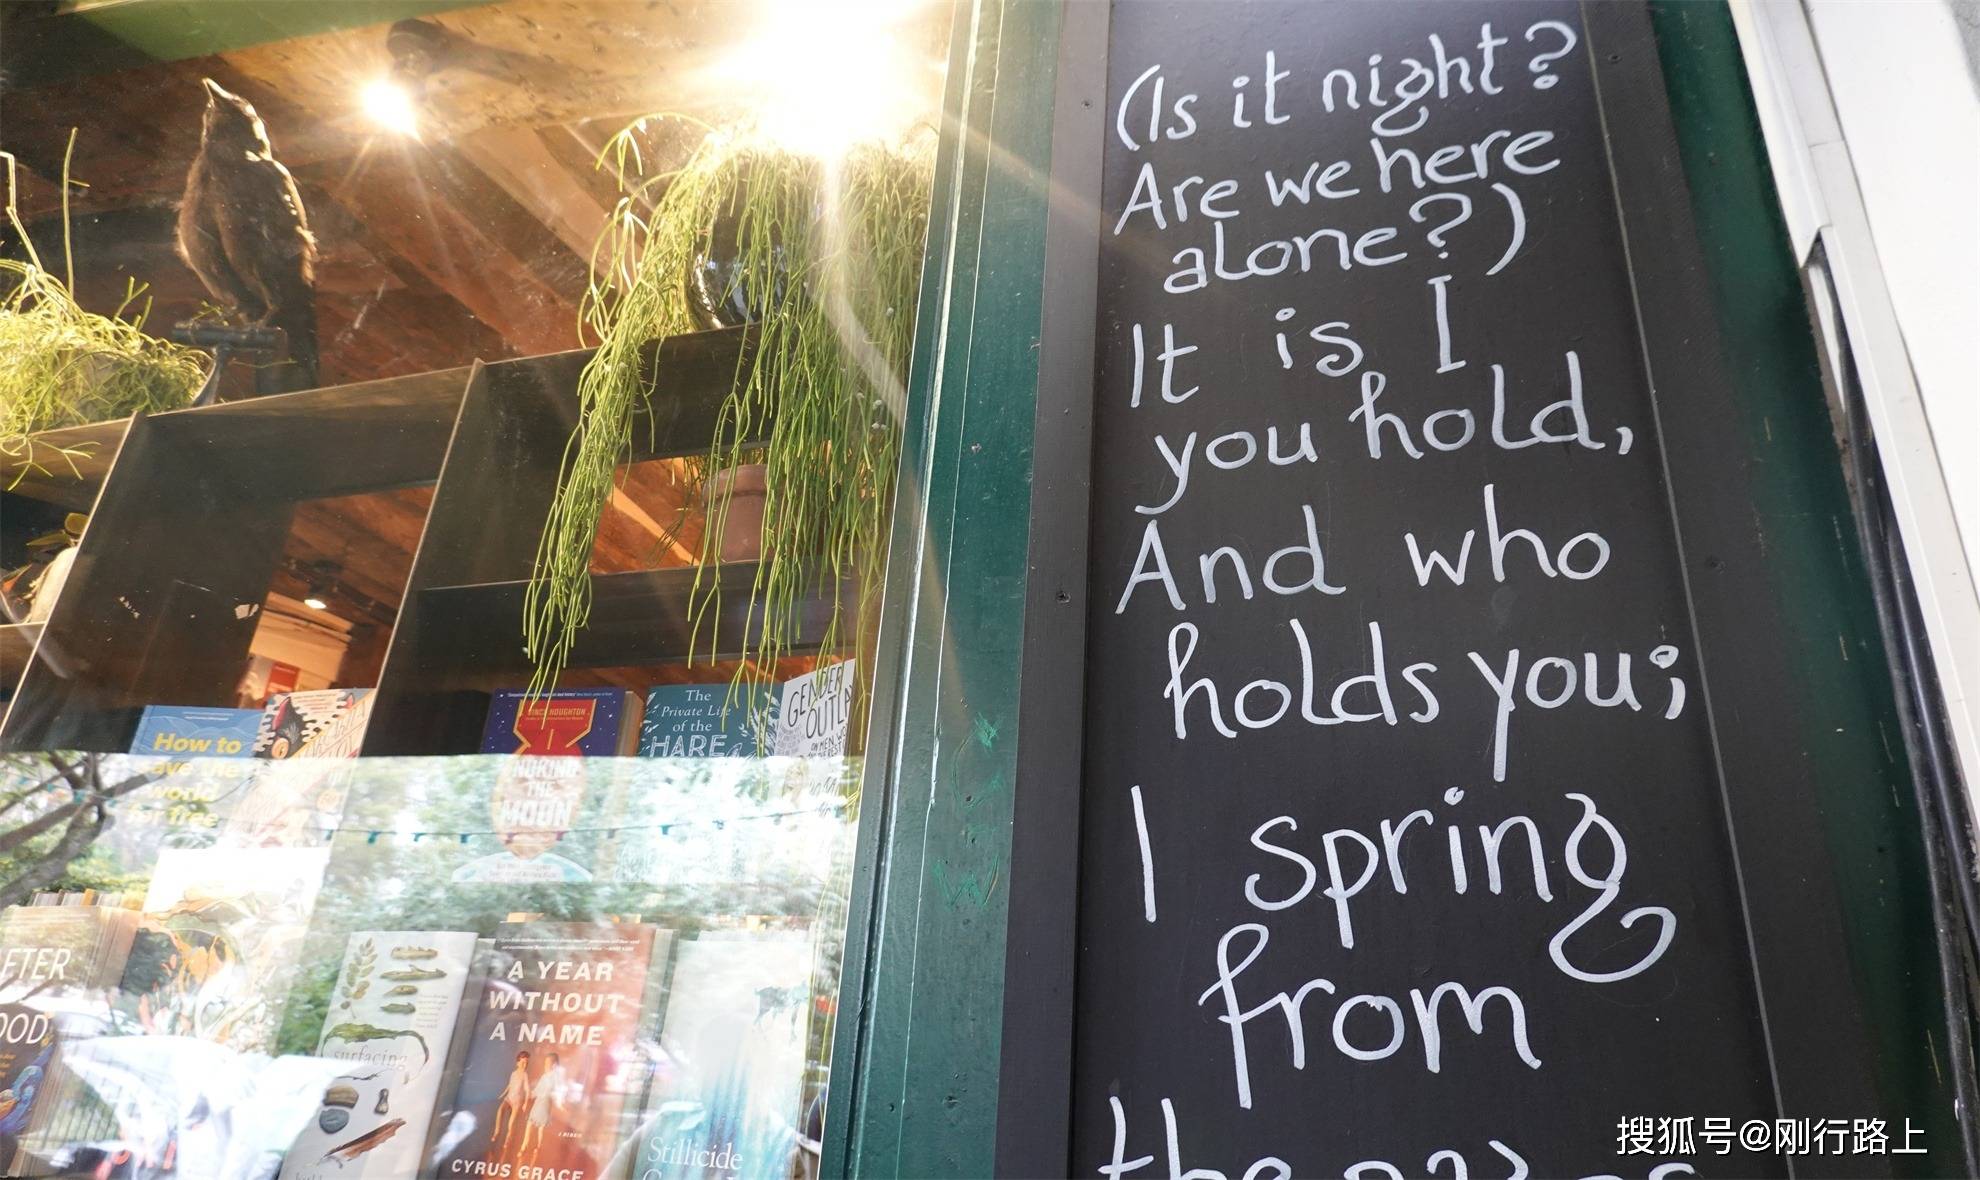 (Is it night?
Are we here
alone?)
It is I
you hold,
And who
holds you;
I spring
from
the pages
How to
save the
world
for free
VINCE HOUGHTON
NUKING
THE
MOON
The
Private Life
of the
HARE
GENDER
A YEAR
WITHOUT
A NAME
CYRUS GRACE
surfacing
Stillicide
搜狐号@刚行路上